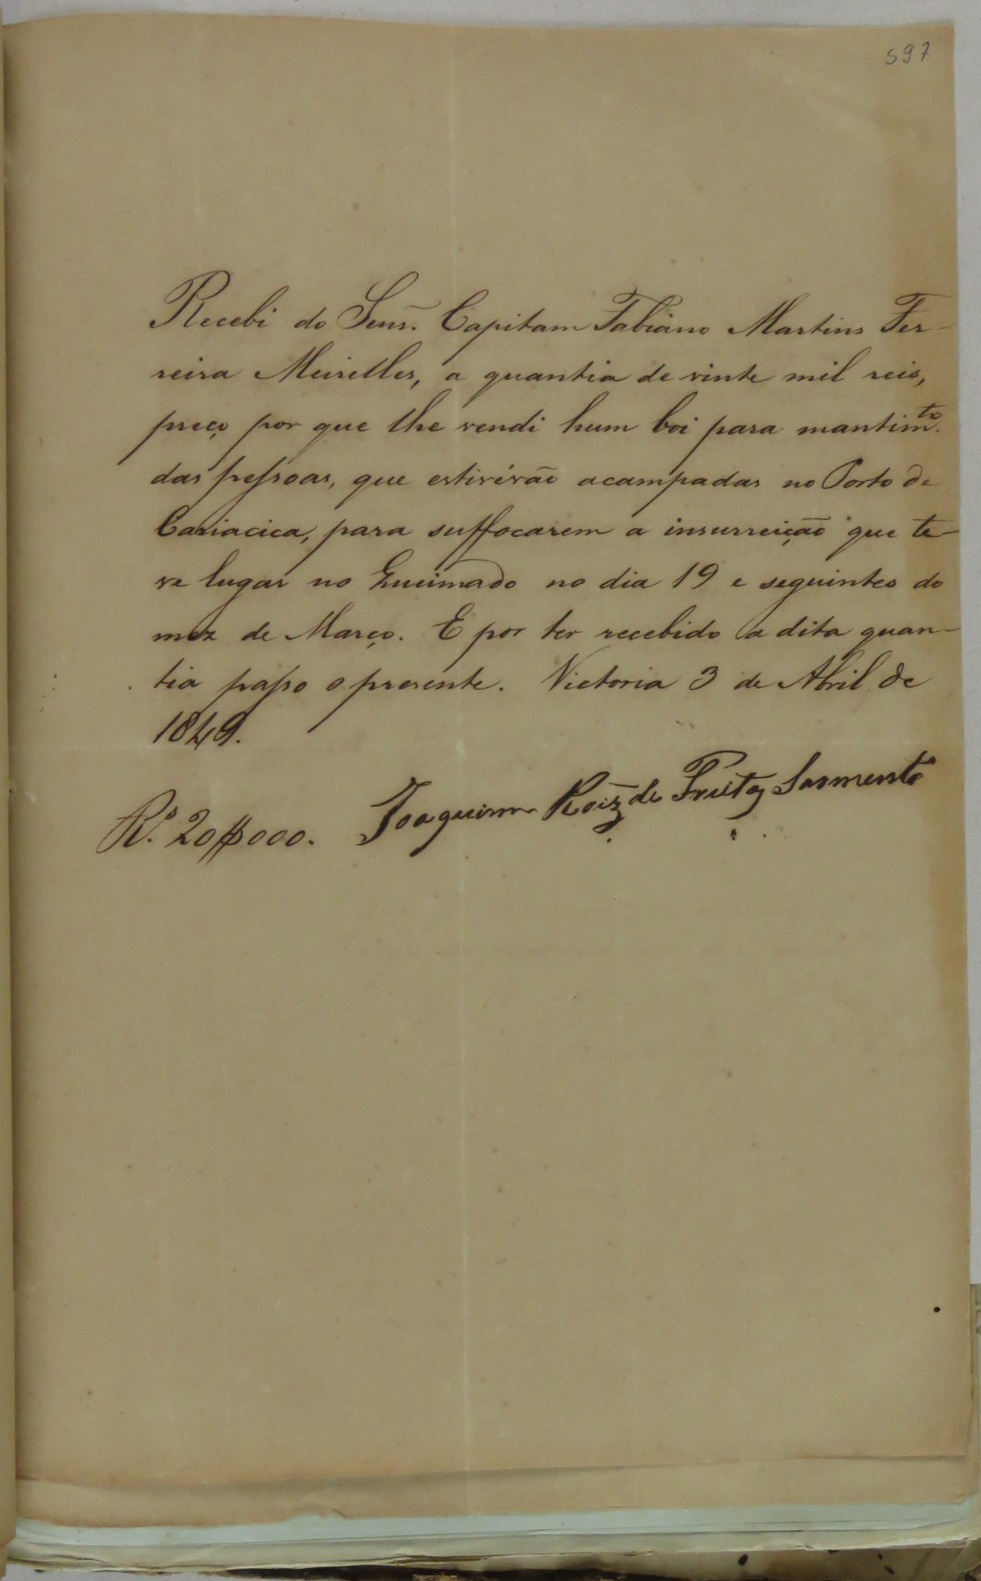 597
Recebi do Senr. Capitam Fabiano Martins Fer-
reira Meirelles, a quantia de vinte mil reis,
preço por que lhe vendi hum boi para mantimto.
das pessoas, que estivérão acampadas no Porto de
Cariacica, para suffocarem a insurreição que te-
ve lugar no Queimado no dia 19 e seguintes do
mez de Março. E por ter recebido a dita quan-
tia passo o presente. Victoria 3 de Abril de
1849.
Rs. 20$000. Joaquim Roiz de Freitas Sarmento